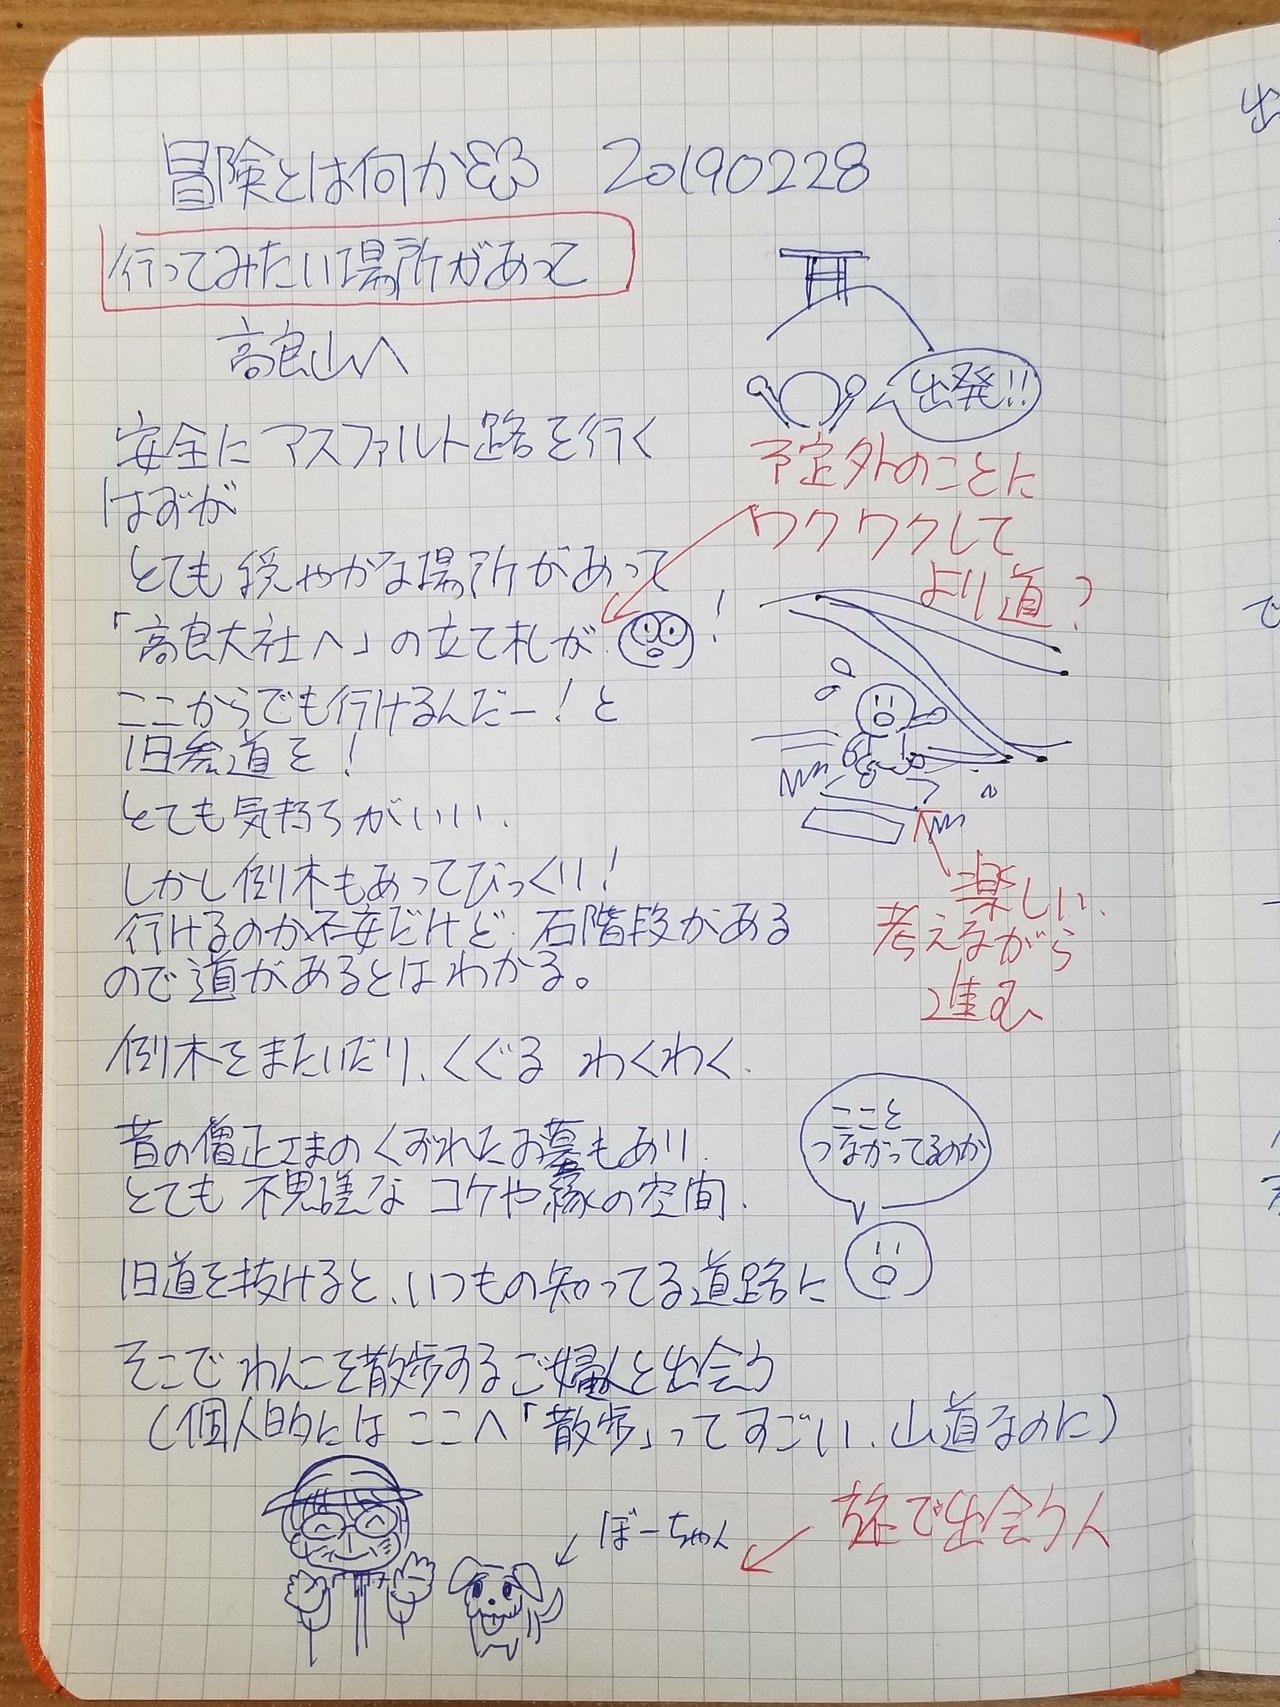 冒険とは何か 20190228
行ってみたい場所があって
高良山へ
出発!!
安全にアスファルト路を行く
はずが
予定外のことに
ワクワクして
より道?
とても穏やかな場所があって
「高良大社へ」の立て札が
!
ここからでも行けるんだー!と
旧参道を!
とても気持ちがいい.
しかし倒木もあってびっくり!
行けるのか不安だけど、石階段がある
ので道があるとはわかる。
楽しい.
考えながら
進む
倒木をまたいだり、くぐる わくわく.
昔の僧正さまのくずれたお墓もあり.
とても不思議な コケや緑の空間.
ここと
つながってるのか
旧道を抜けると、いつもの知ってる道路に
そこでわんこを散歩するご婦人と出会う
(個人的にはここへ「散歩」ってすごい、山道なのに)
ぼーちゃん
旅で出会う人
出
で